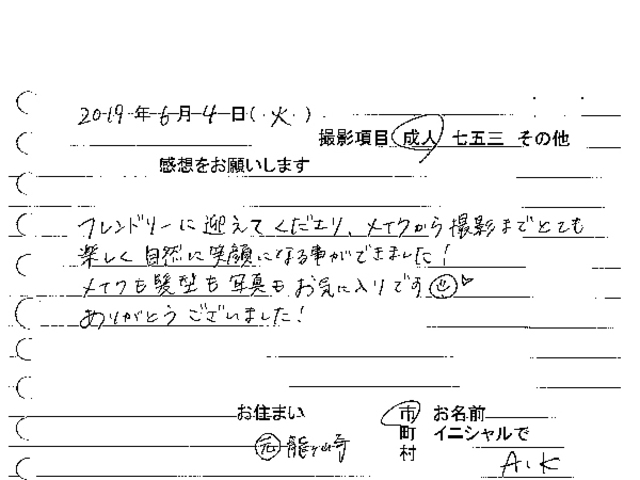 2019年6月4日(火)
撮影項目 成人 七五三 その他
感想をお願いします
フレンドリーに迎えてくださり、メイクから撮影までとても
楽しく自然に笑顔になる事ができました!
メイクも髪型も写真もお気に入りです
ありがとうございました!
お住まい 市 お名前
町 イニシャルで
元 龍ヶ崎 村
A.K